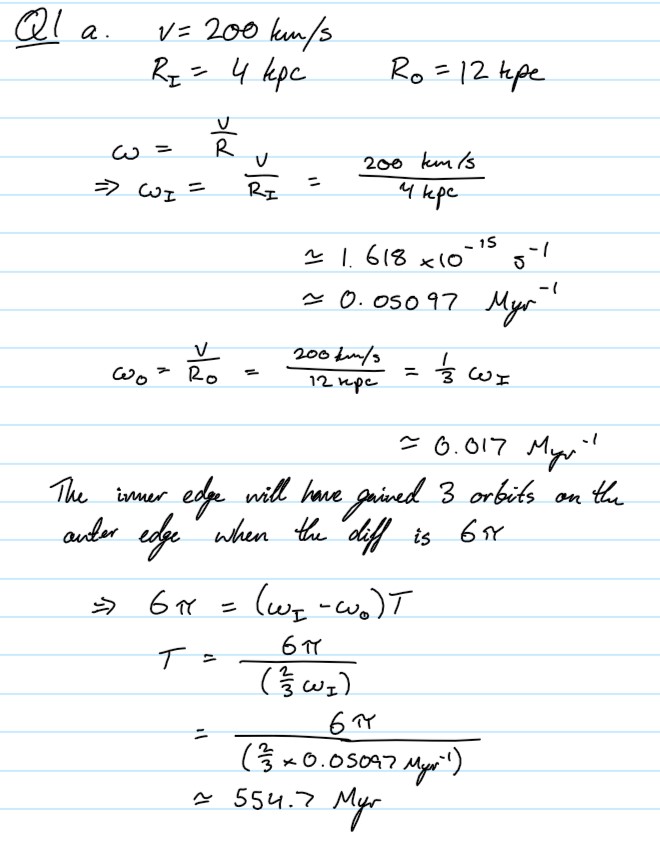 Q1 a. v = 200 km/s
R_I = 4 kpc R_O = 12 kpc
ω = v/R
⇒ ω_I = v/R_I = 200 km/s / 4 kpc
≃ 1.618 × 10^-15 s^-1
≃ 0.05097 Myr^-1
ω_O = v/R_O = 200 km/s / 12 kpc = 1/3 ω_I
≃ 0.017 Myr^-1
The inner edge will have gained 3 orbits on the
outer edge when the diff is 6π
⇒ 6π = (ω_I - ω_O)T
T = 6π / (2/3 ω_I)
= 6π / (2/3 × 0.05097 Myr^-1)
≃ 554.7 Myr